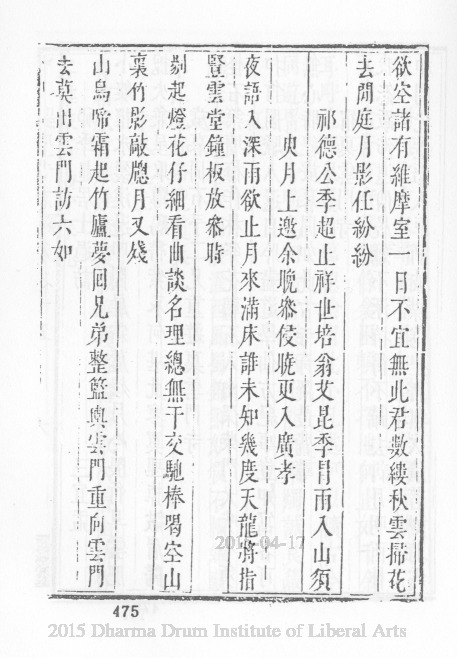 欲空諸有維摩室一日不宜無此君數縷秋雲掃花
去閒庭月影任紛紛
祁德公季超止祥世培翁艾昆季冒雨入山須
臾月上邀余晚參侵曉更入廣孝
夜語入深雨欲止月來滿床誰未知幾度天龍將指
豎雲堂鐘板放參時
剔起燈花仔細看曲談名理總無干交馳棒喝空山
裏竹影敲牕月又殘
山烏啼霜起竹廬夢回兄弟整籃輿雲門重向雲門
去莫出雲門訪六如
475
2015-04-17
2015 Dharma Drum Institute of Liberal Arts